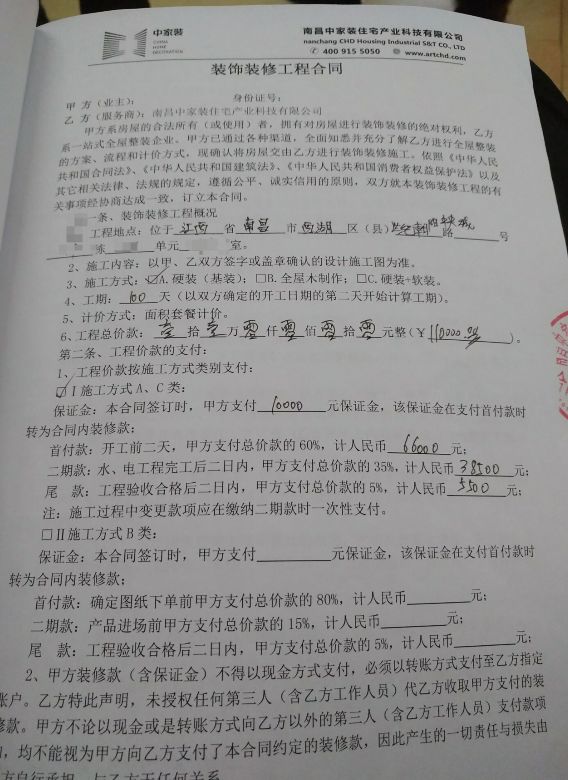 中家装
CHINA
HOME
DECORATION
南昌中家装住宅产业科技有限公司
nanchang CHD Housing Industrial S&T CO., LTD
400 915 5050 www.artchd.com
装饰装修工程合同
甲 方（业主）： 身份证号：
乙 方（服务商）：南昌中家装住宅产业科技有限公司
甲方系房屋的合法所有（或使用）者，拥有对房屋进行装饰装修的绝对权利，乙方
系一站式全屋整装企业。甲方已通过各种渠道，全面知悉并充分了解乙方进行全屋整装
的方案、流程和计价方式，现确认将房屋交由乙方进行装饰装修施工。依照《中华人民
共和国合同法》、《中华人民共和国建筑法》、《中华人民共和国消费者权益保护法》以及
其它相关法律、法规的规定，遵循公平、诚实信用的原则，双方就本装饰装修工程的有
关事项经协商达成一致，订立本合同。
一条、装饰装修工程概况
工程地点：位于 江西 省 南昌 市 西湖 区（县） 路 号
栋 单元 室。
2、施工内容：以甲、乙双方签字或盖章确认的设计施工图为准。
3、施工方式：☑A.硬装（基装）；□B.全屋木制作；□C.硬装+软装。
4、工期： 100 天（以双方确定的开工日期的第二天开始计算工期）。
5、计价方式：面积套餐计价。
6、工程总价款：壹 拾 壹 万 零 仟 零 佰 零 拾 零 元整（￥110000.00）。
第二条、工程价款的支付：
1、工程价款按施工方式类别支付：
☑Ⅰ施工方式 A、C 类：
保证金：本合同签订时，甲方支付 10000 元保证金，该保证金在支付首付款时
转为合同内装修款；
首付款：开工前二天，甲方支付总价款的 60%，计人民币 66000 元；
二期款：水、电工程完工后二日内，甲方支付总价款的 35%，计人民币 38500 元；
尾 款：工程验收合格后二日内，甲方支付总价款的 5%，计人民币 5500 元；
注：施工过程中变更款项应在缴纳二期款时一次性支付。
□Ⅱ施工方式 B 类：
保证金：本合同签订时，甲方支付________元保证金，该保证金在支付首付款时
转为合同内装修款；
首付款：确定图纸下单前甲方支付总价款的 80%，计人民币________元；
二期款：产品进场前甲方支付总价款的 15%，计人民币________元；
尾 款：工程验收合格后二日内，甲方支付总价款的 5%，计人民币________元；
2、甲方装修款（含保证金）不得以现金方式支付，必须以转账方式支付至乙方指定
账户。乙方特此声明，未授权任何第三人（含乙方工作人员）代乙方收取甲方支付的装
修款。甲方不论以现金或是转账方式向乙方以外的第三人（含乙方工作人员）支付款项
，均不能视为甲方向乙方支付了本合同约定的装修款，因此产生的一切责任与损失由
方自行承担，与乙方无任何关系